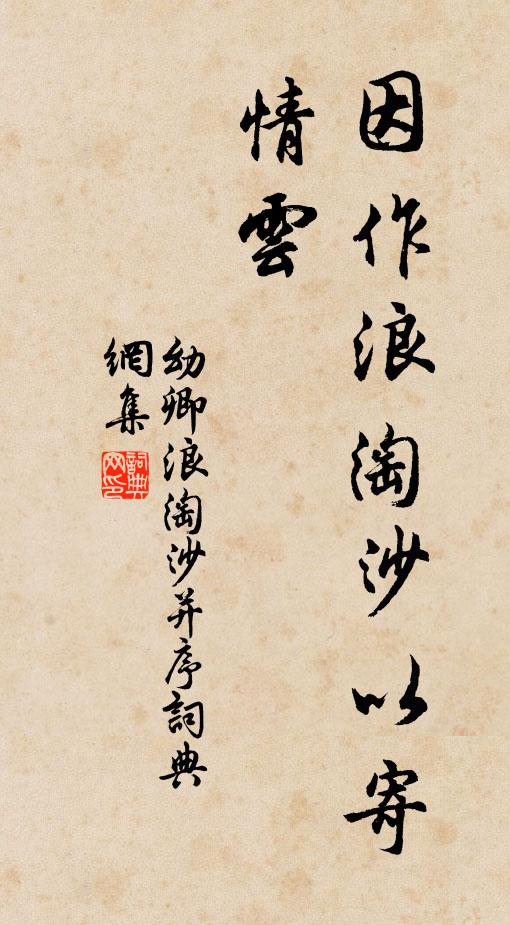 因作浪淘沙以寄
情雲
幼卿浪淘沙并序詞典
網集
詞典
网印